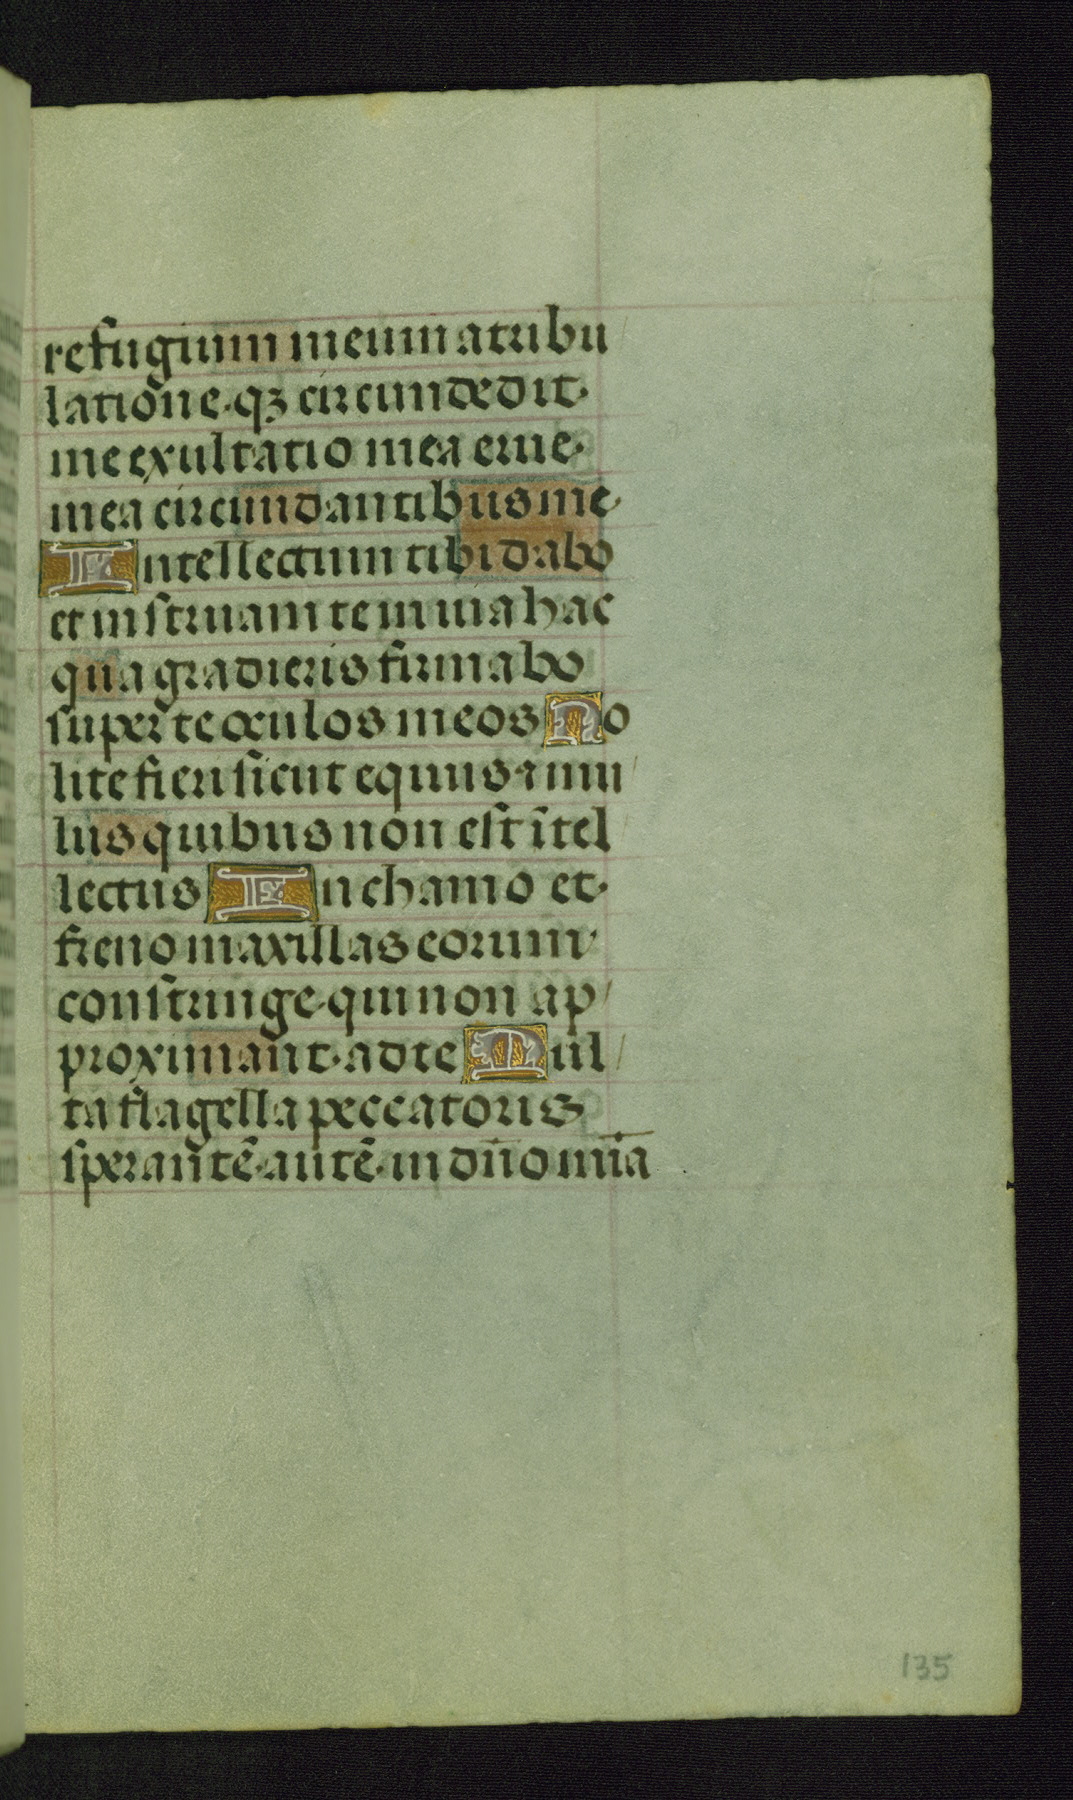 refugium meum atribu
latione·qꝫ circundedit·
me exultatio mea erue·
mea circundantibus me·
Intellectum tibi dabo
et instruam te in uia hac
qua gradieris firmabo
super te oculos meos No
lite fieri sicut equus ⁊ mu
lus quibus non est ītel
lectus In chamo et·
freno maxillas eorum
constringe·qui non ap
proximant·adte Mul
ta flagella peccatoris
sperantē·autē·in dn̄o mīa
135